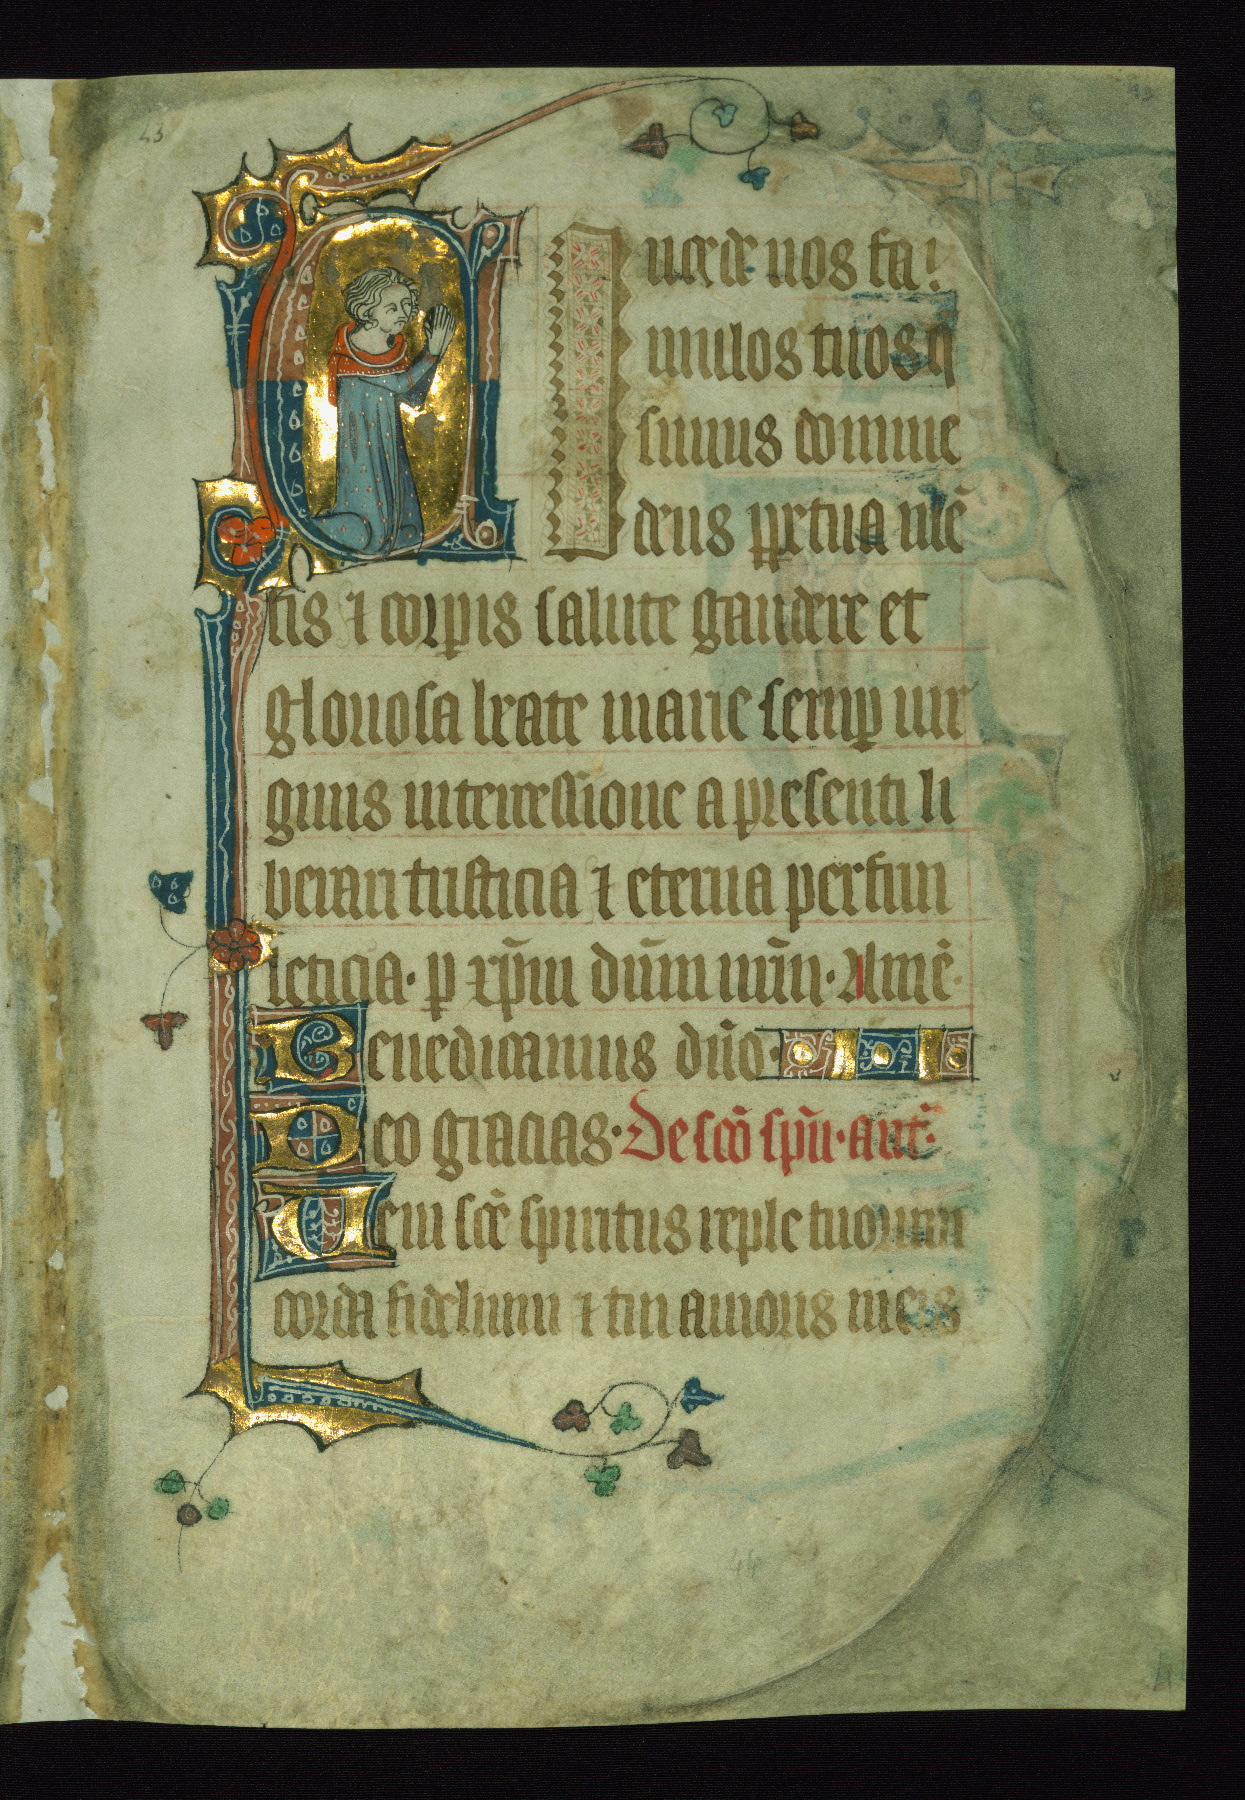 43
Concede nos fa
mulos tuos q̄
sumus domine
deus ꝑpetua mē
tis ⁊ corpis salute gaudere et
gloriosa beate marie semꝑ uir
ginis intercessione a presenti li
berari tristicia ⁊ eterna perfrui
leticia. ꝑ xp̄m dūm nr̄m. Amē.
Benedicamus dn̄o.
Deo gracias. De scō spū. ant̄.
Ueni scē spiritus reple tuorum
corda fidelium ⁊ tui amoris in eis
44